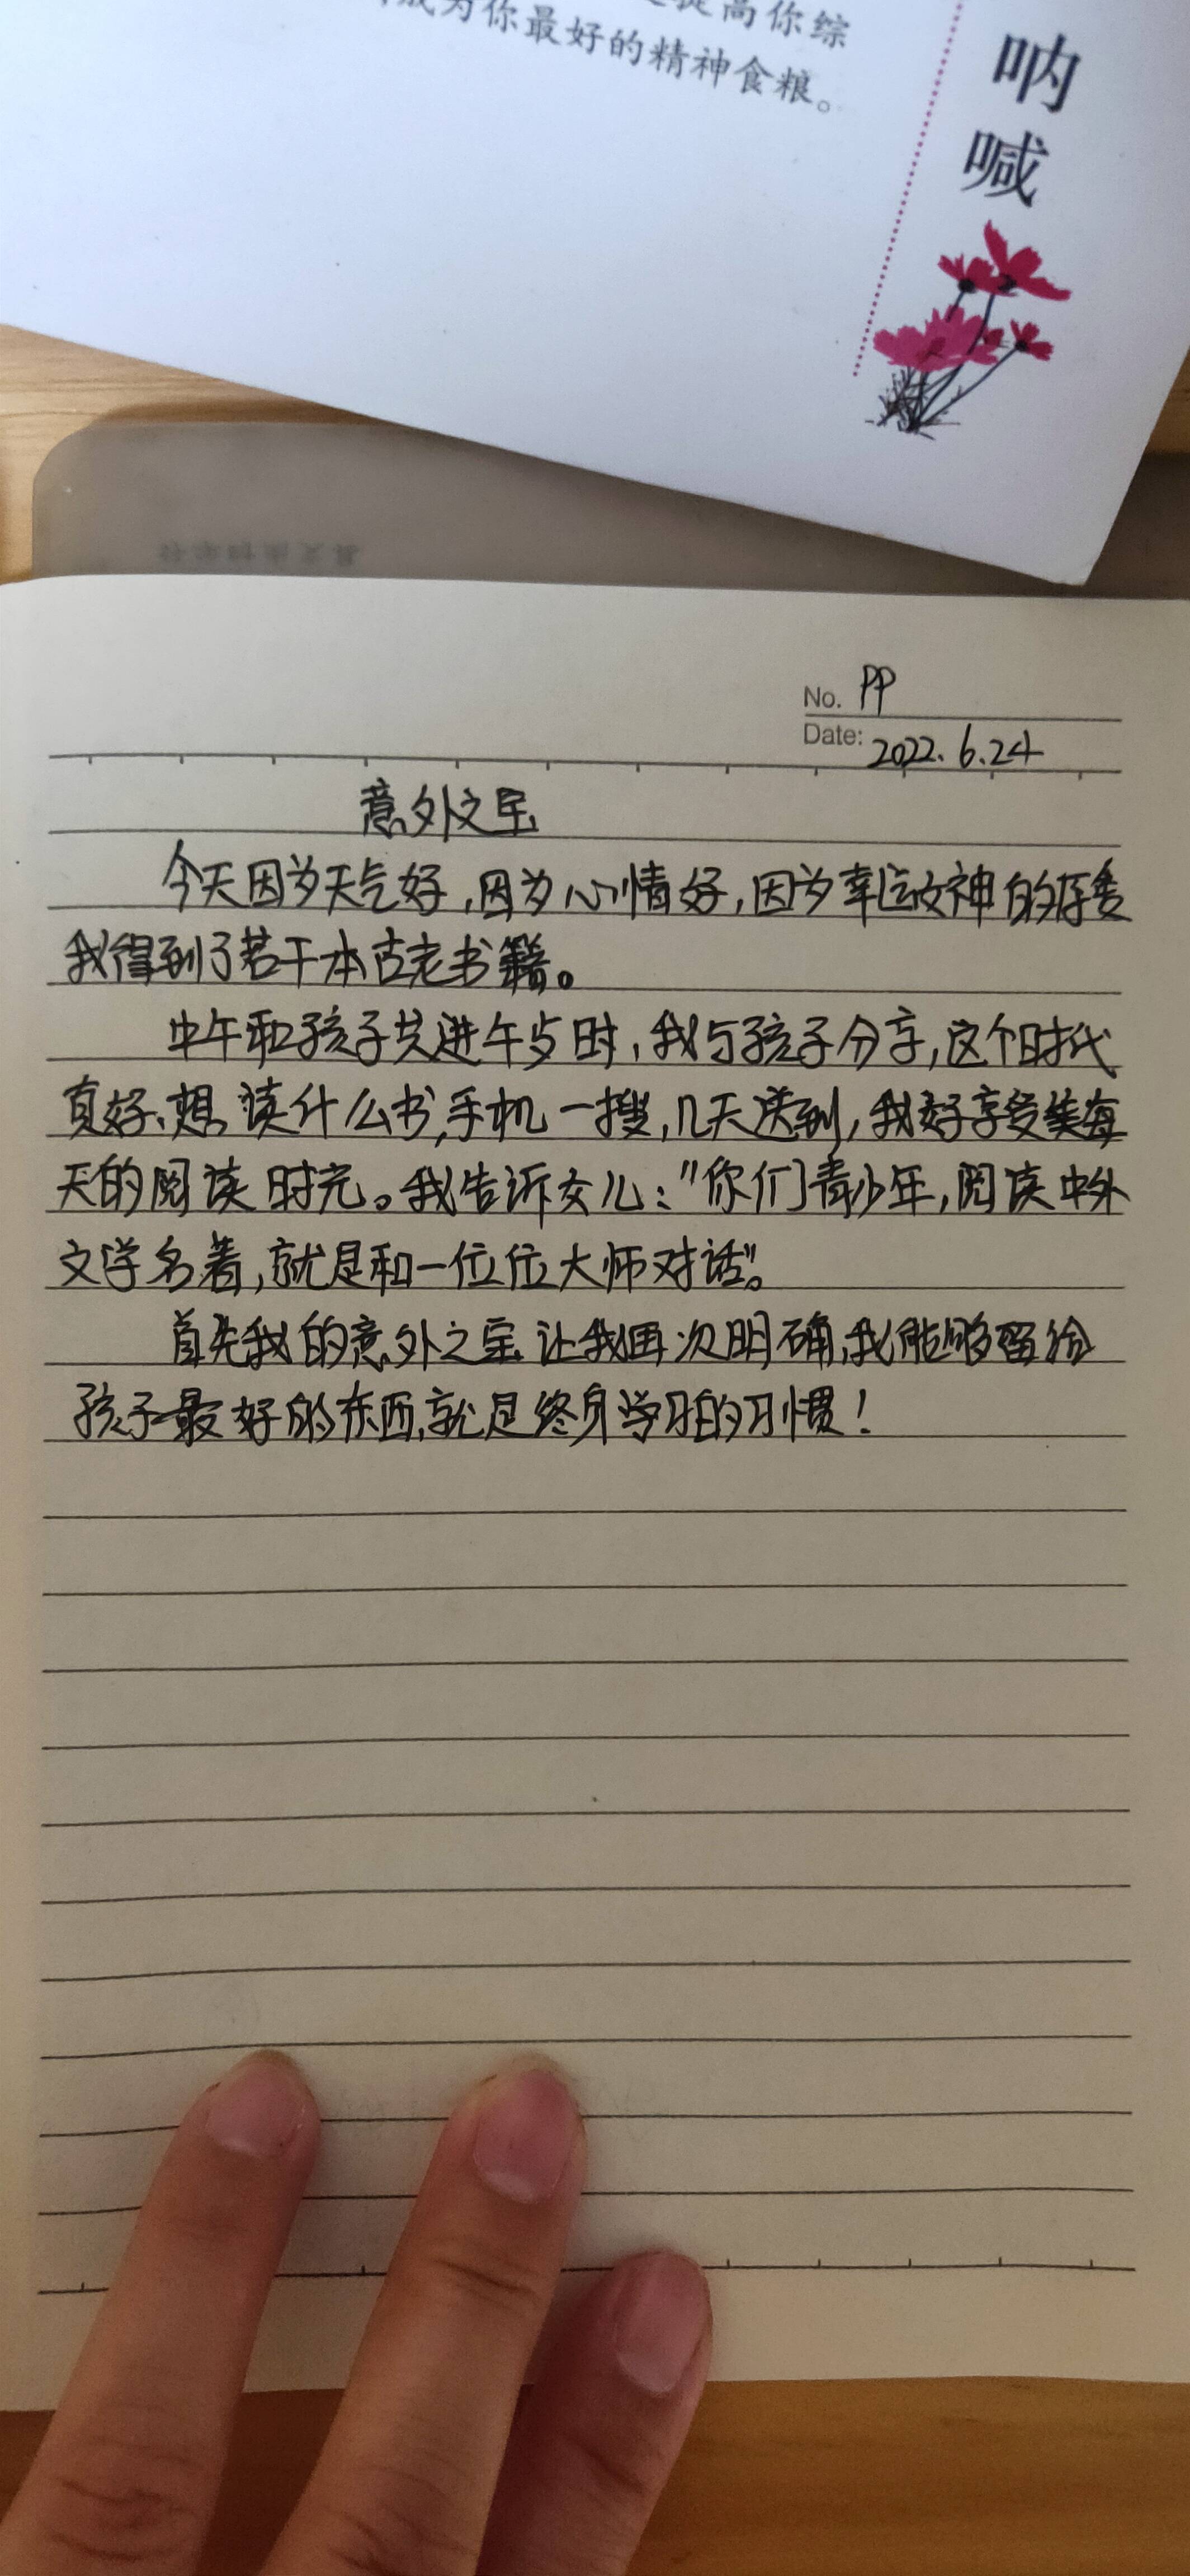 提高你综
成为你最好的精神食粮。
呐喊
No. PP
Date: 2022.6.24
意外之宝
今天因为天气好,因为心情好,因为幸运女神的厚爱
我得到了若干本古老书籍。
中午和孩子共进午歺时,我与孩子分享,这个时代
真好、想读什么书,手机一搜,几天送到,我好享受美每
天的阅读时光。我告诉女儿:"你们青少年,阅读中外
文学名著,就是和一位位大师对话"。
首先我的意外之宝让我再次明确,我能够留给
孩子最好的东西,就是终身学习的习惯!